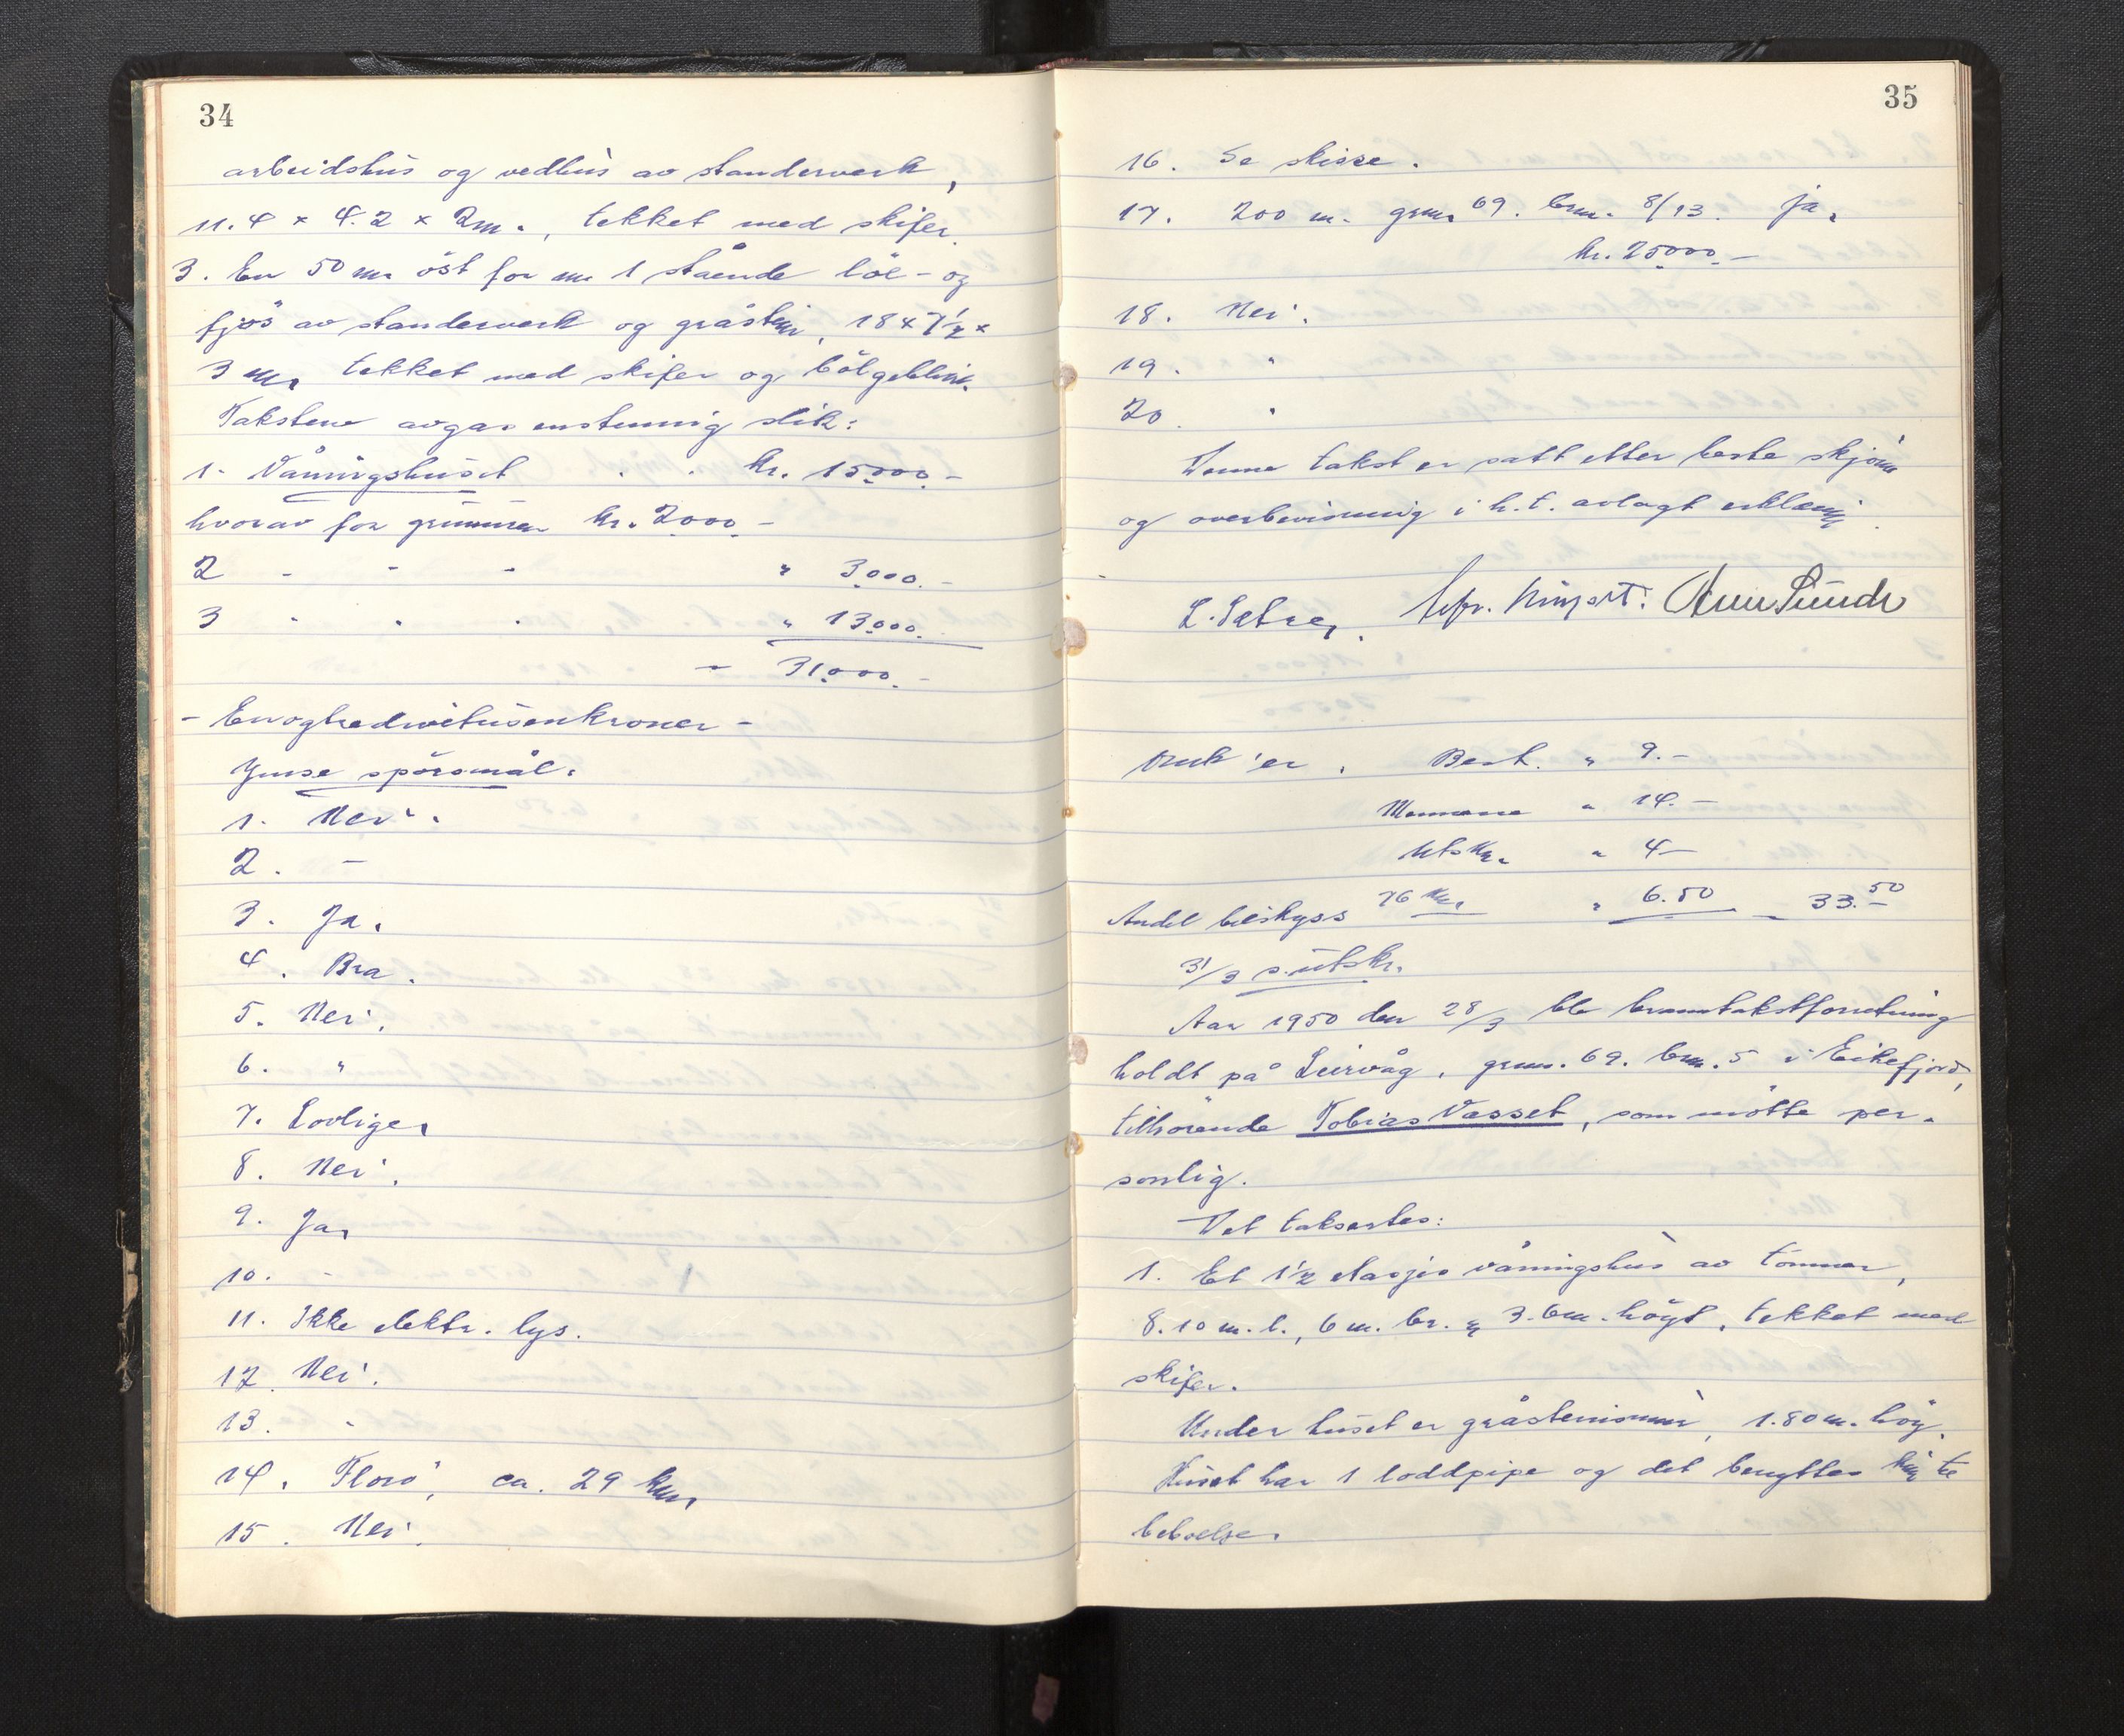 34
arbeidshus og vedhus av standerverk,
11.4 x 4.2 x 2m., tekket med skifer.
3. En 50 m. öst for nr 1 stående löe- og
fjös av standerverk og gråstein, 18 x 7½ x
3 m. tekket med skifer og bölgeblikk.
Taksten avgas enstemmig slik:
1. Våningshuset . . kr. 15000.-
hvorav for grunnmur kr. 2000.-
2 - - - " 3000.-
3 " " " " 13000.-
- 31000.-
- Enogtredivetusenkroner -
Ymse spörsmål:
1. Nei.
2. -
3. Ja.
4. Bra.
5. Nei.
6. "
7. Lovlige.
8. Nei.
9. Ja.
10. -
11. Ikke elektr. lys.
12. Nei.
13. "
14. Florö, ca. 29 km.
15. Nei.
35
16. Se skisse.
17. 200 m. grnr. 69. brnr. 8/13. Ja.
kr. 25000.-
18. Nei.
19. "
20. "
Denne takst er satt etter beste skjönn
og overbevisning i h.t. avlagt erklæring.
L. Sætre,
Best. " 9.-
Mennene " 14.-
Utskr. " 4-
Andel bilskyss 76 km. " 6.50 - 33.50
31/3 s. utskr.
Aar 1950 den 28/3 ble branntakstforretning
holdt på Leirvåg, grnr. 69. brnr. 5 i Eikefjord,
tilhörende Tobias Vasset, som mötte per-
sonlig.
Det taksertes:
1. Et 1½ etasjes våningshus av tömmer,
8.10 m. l., 6 m. br. & 3.6m. högt, tekket med
skifer.
Under huset er gråsteinsmur, 1.80 m. hög.
Huset har 1 loddpipe og det benyttes kun til
beboelse.